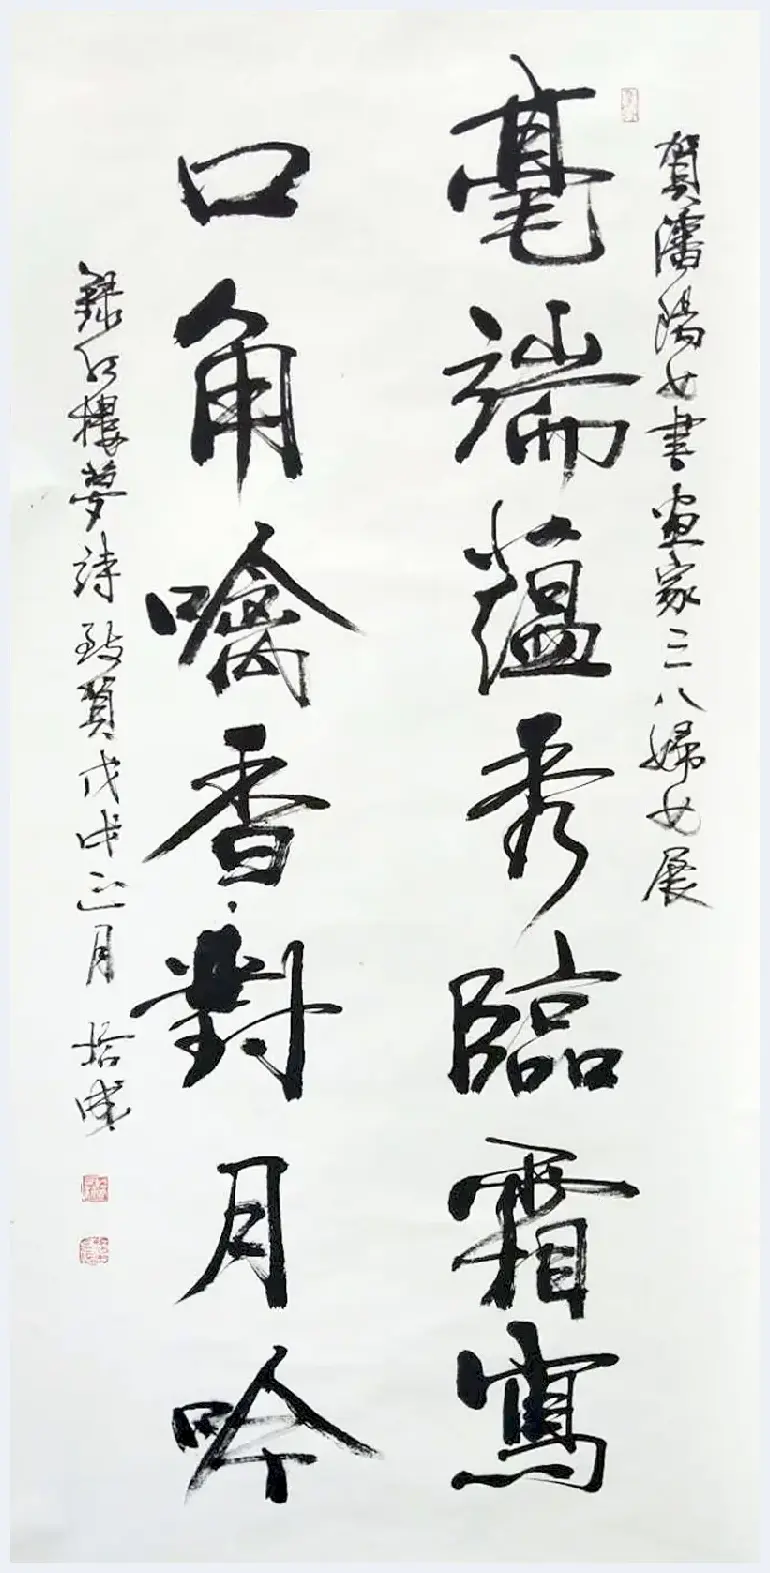 賀瀋陽女書畫家三八婦女展
毫端蘊秀臨霜寫
口角噙香對月吟
錄紅樓夢詩致賀戊戌正月培成